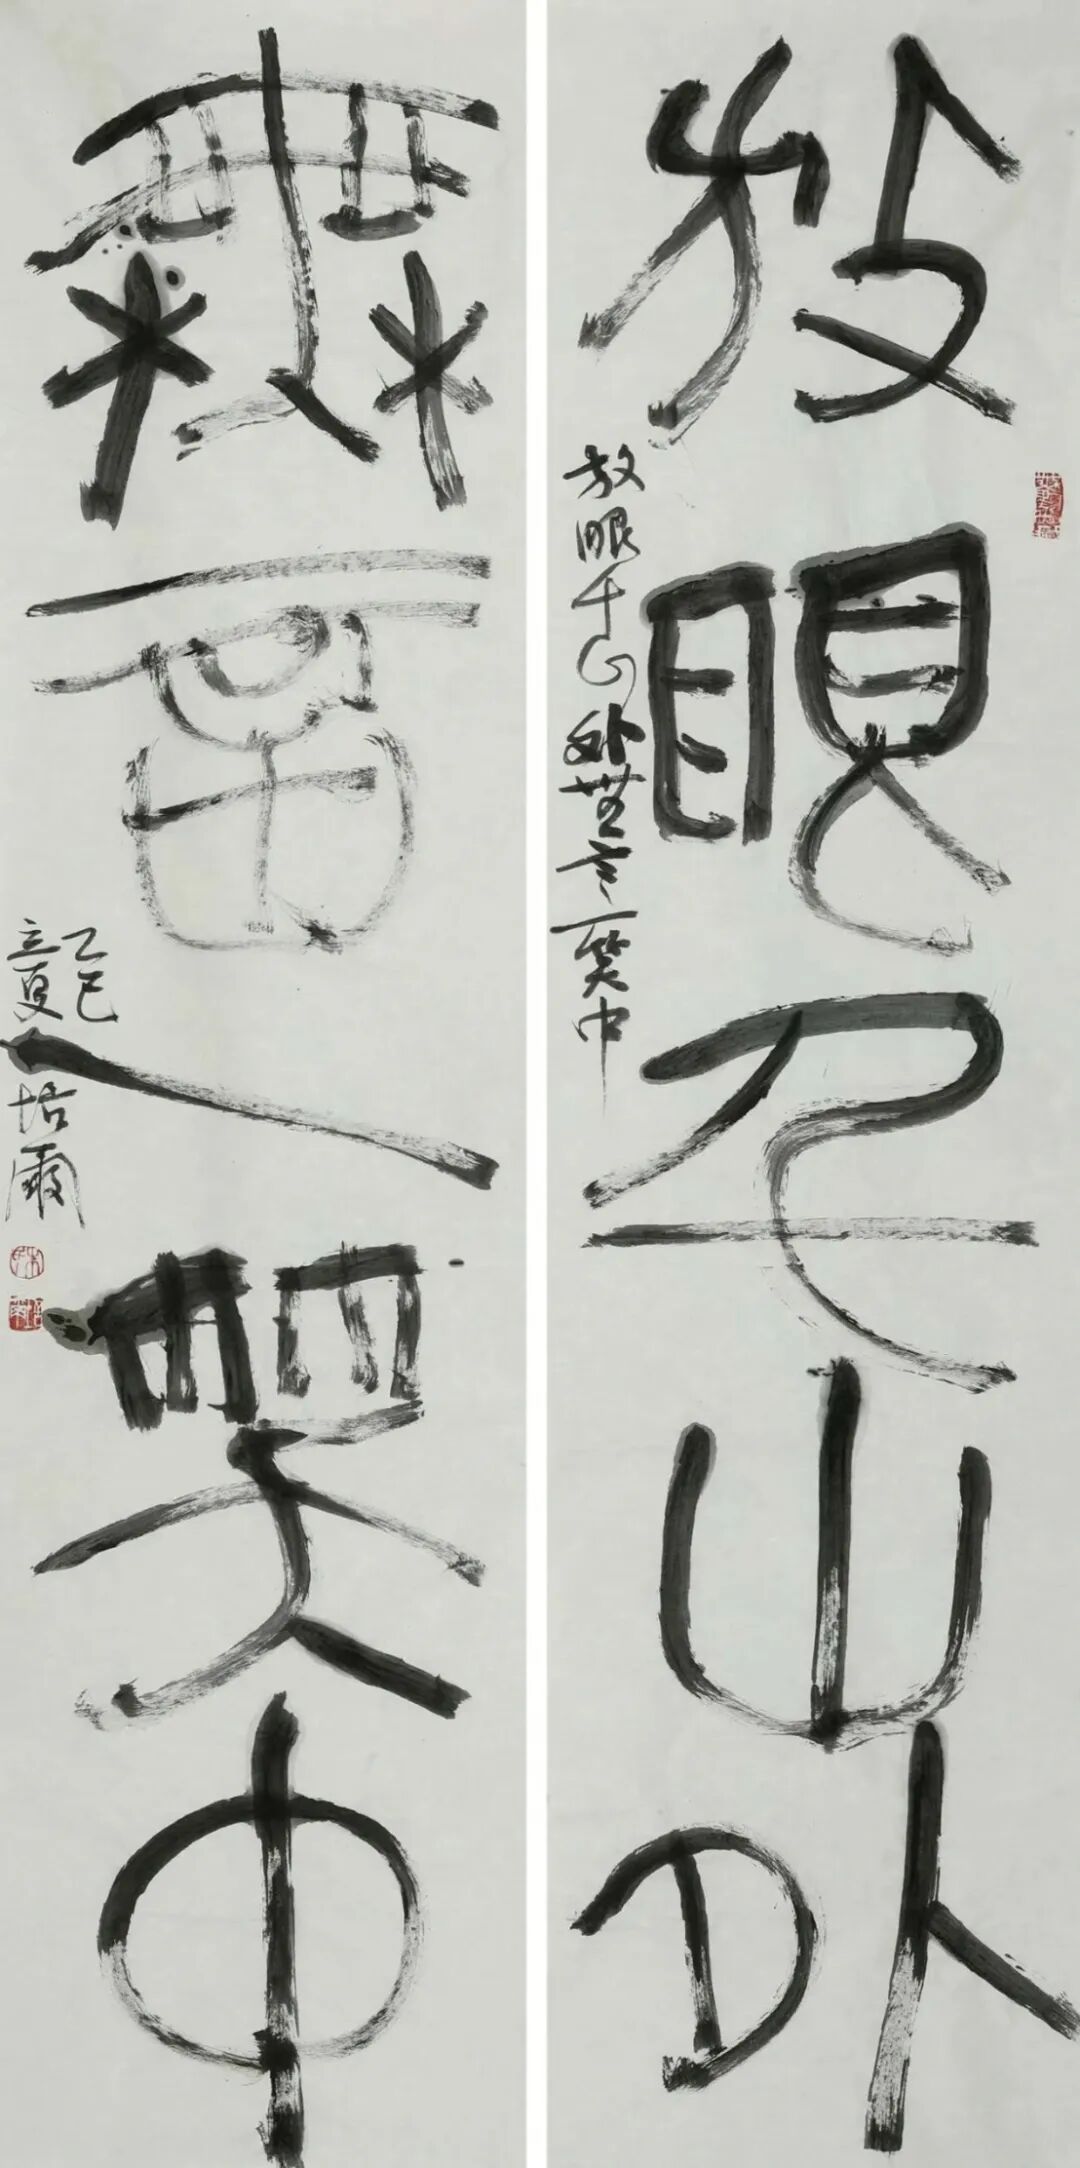 放眼千山外
放眼千山外无言一笑中
無言一笑中
乙巳
立夏
培爾